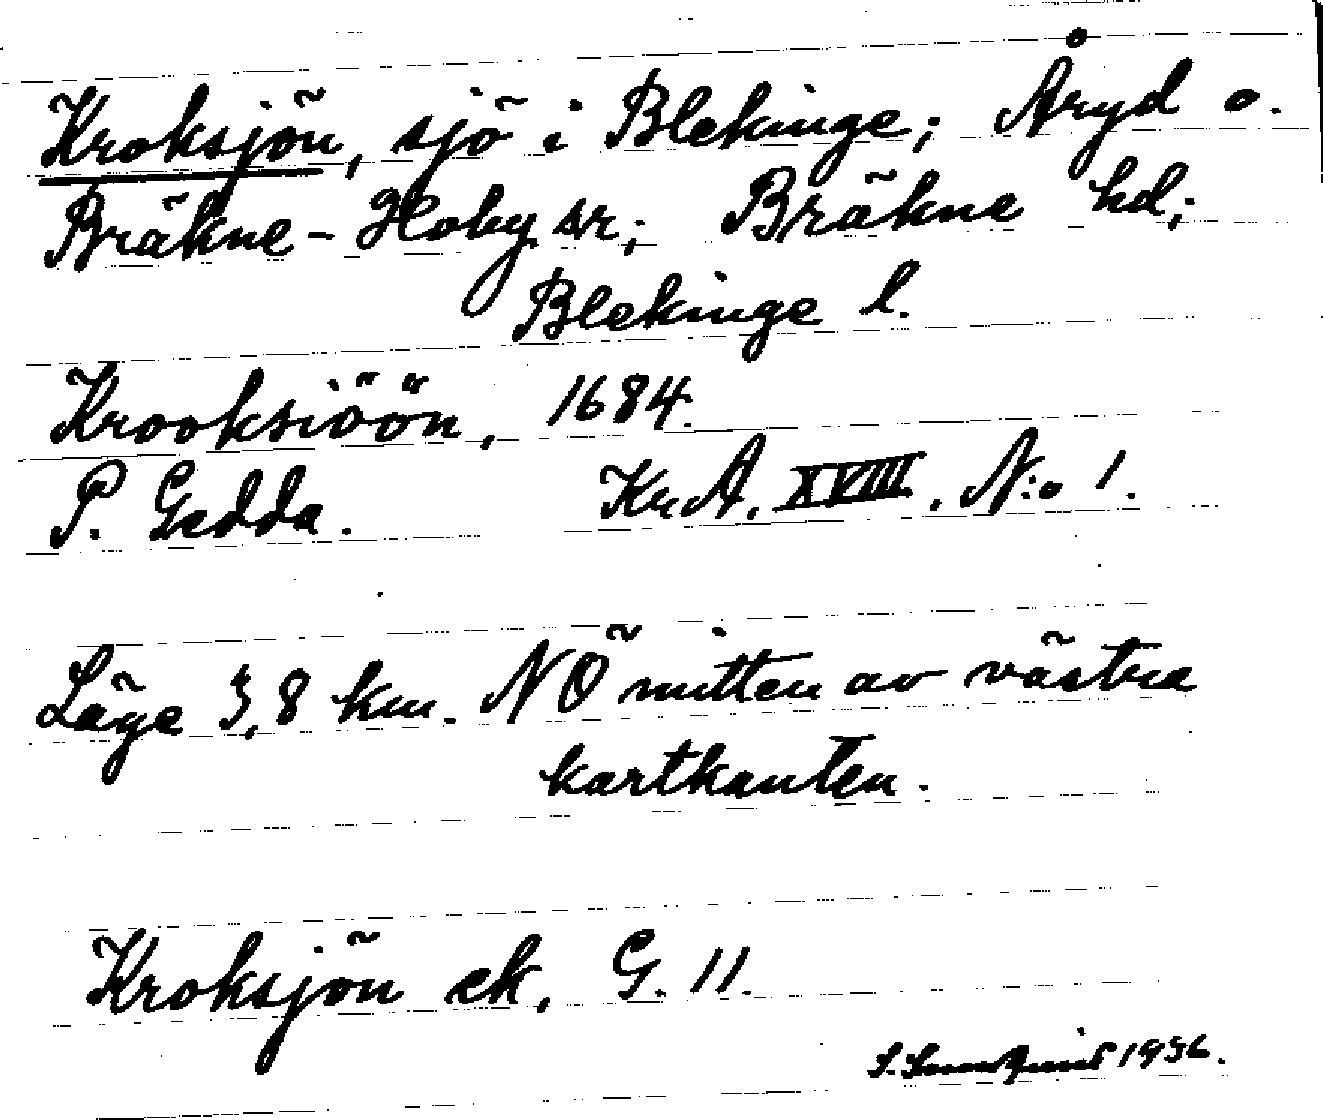 Kroksjön, sjö i Blekinge; Åryd o.
Bräkne-Hoby sr; Bräkne hd;
Blekinge l.
Krooksiöön, 1684.
P. Gedda. KrA. XVIII. N:o 1.
Läge 3,8 km. NÖ mitten av västra
kartkanten.
Kroksjön ek, G. 11.
1936.